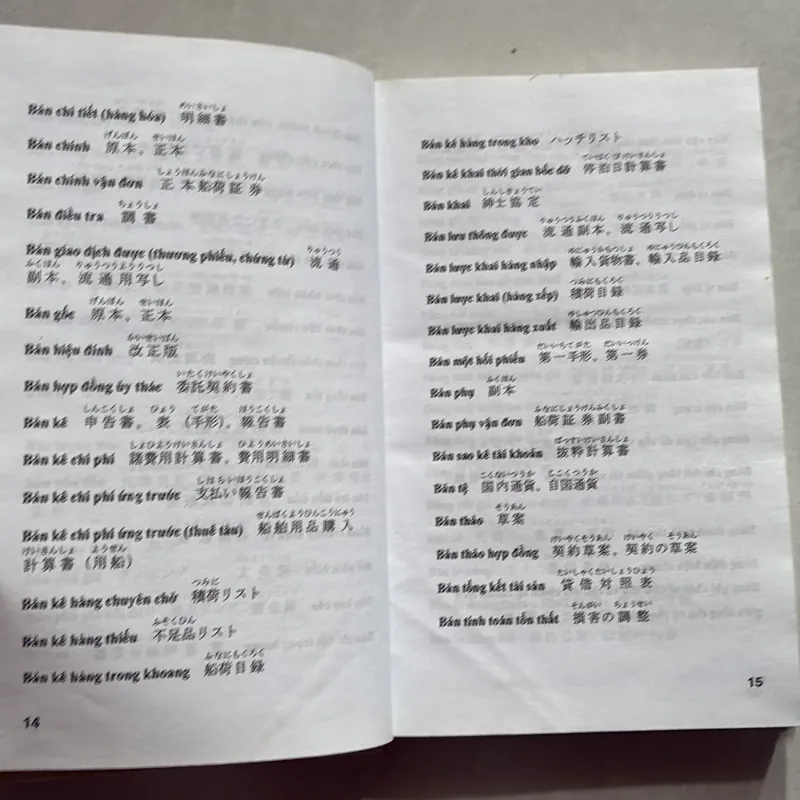 めいさいしょ
Bản chi tiết (hàng hóa) 明細書
げんぽん せいほん
Bản chính 原本。正本
しょうほんふなにしょうけん
Bản chính vận đơn 正本船荷証券
ちょうしょ
Bản điều tra 調書
りゅうつう
Bản giao dịch được (thương phiếu, chứng từ) 流通
ふくほん りゅうつうようううつし
副本。流通用写し
げんぽん せいほん
Bản gốc 原本。正本
かいせいばん
Bản hiệu đính 改正版
いたくけいやくしょ
Bản hợp đồng ủy thác 委託契約書
しんこくしょ ひょう てがた ほうこくしょ
Bản kê 申告書。表（手形）。報告書
しょひようけいさんしょ ひようめいさいしょ
Bản kê chi phí 諸費用計算書。費用明細書
しはらいほうこくしょ
Bản kê chi phí ứng trước 支払い報告書
せんぱくようひんこうにゅう
Bản kê chi phí ứng trước (thuê tàu) 船舶用品購入
けいさんしょ ようせん
計算書（用船）
つみに
Bản kê hàng chuyên chở 積荷リスト
ふそくひん
Bản kê hàng thiếu 不足品リスト
ふなにもくろく
Bản kê hàng trong khoang 船荷目録
14
Bản kê hàng trong kho ハッチリスト
ていはくびけいさんしょ
Bản kê khai thời gian bốc dỡ 停泊日計算書
しんしきょうてい
Bản khai 紳士協定
りゅうつうふくほん りゅうつううつし
Bản lưu thông được 流通副本。流通写し
ゆにゅうかもつしょ ゆにゅうひんもくろく
Bản lược khai hàng nhập 輸入貨物書。輸入品目録
つみにもくろく
Bản lược khai (hàng xếp) 積荷目録
ゆしゅつひんもくろく
Bản lược khai hàng xuất 輸出品目録
だいいちてがた だいいっけん
Bản một hối phiếu 第一手形。第一券
ふくほん
Bản phụ 副本
ふなにしょうけんふくしょ
Bản phụ vận đơn 船荷証券副書
ばっすいけいさんしょ
Bản sao kê tài khoản 抜粋計算書
こくないつうか じこくつうか
Bản tệ 国内通貨。自国通貨
そうあん
Bản thảo 草案
けいやくそうあん けいやく そうあん
Bản thảo hợp đồng 契約草案。契約の草案
たいしゃくたいしょうひょう
Bản tổng kết tài sản 貸借対照表
そんがい ちょうせい
Bản tính toán tổn thất 損害の調整
15